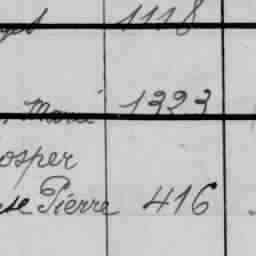 1118
Marie 1323
osper
se Pierre 416